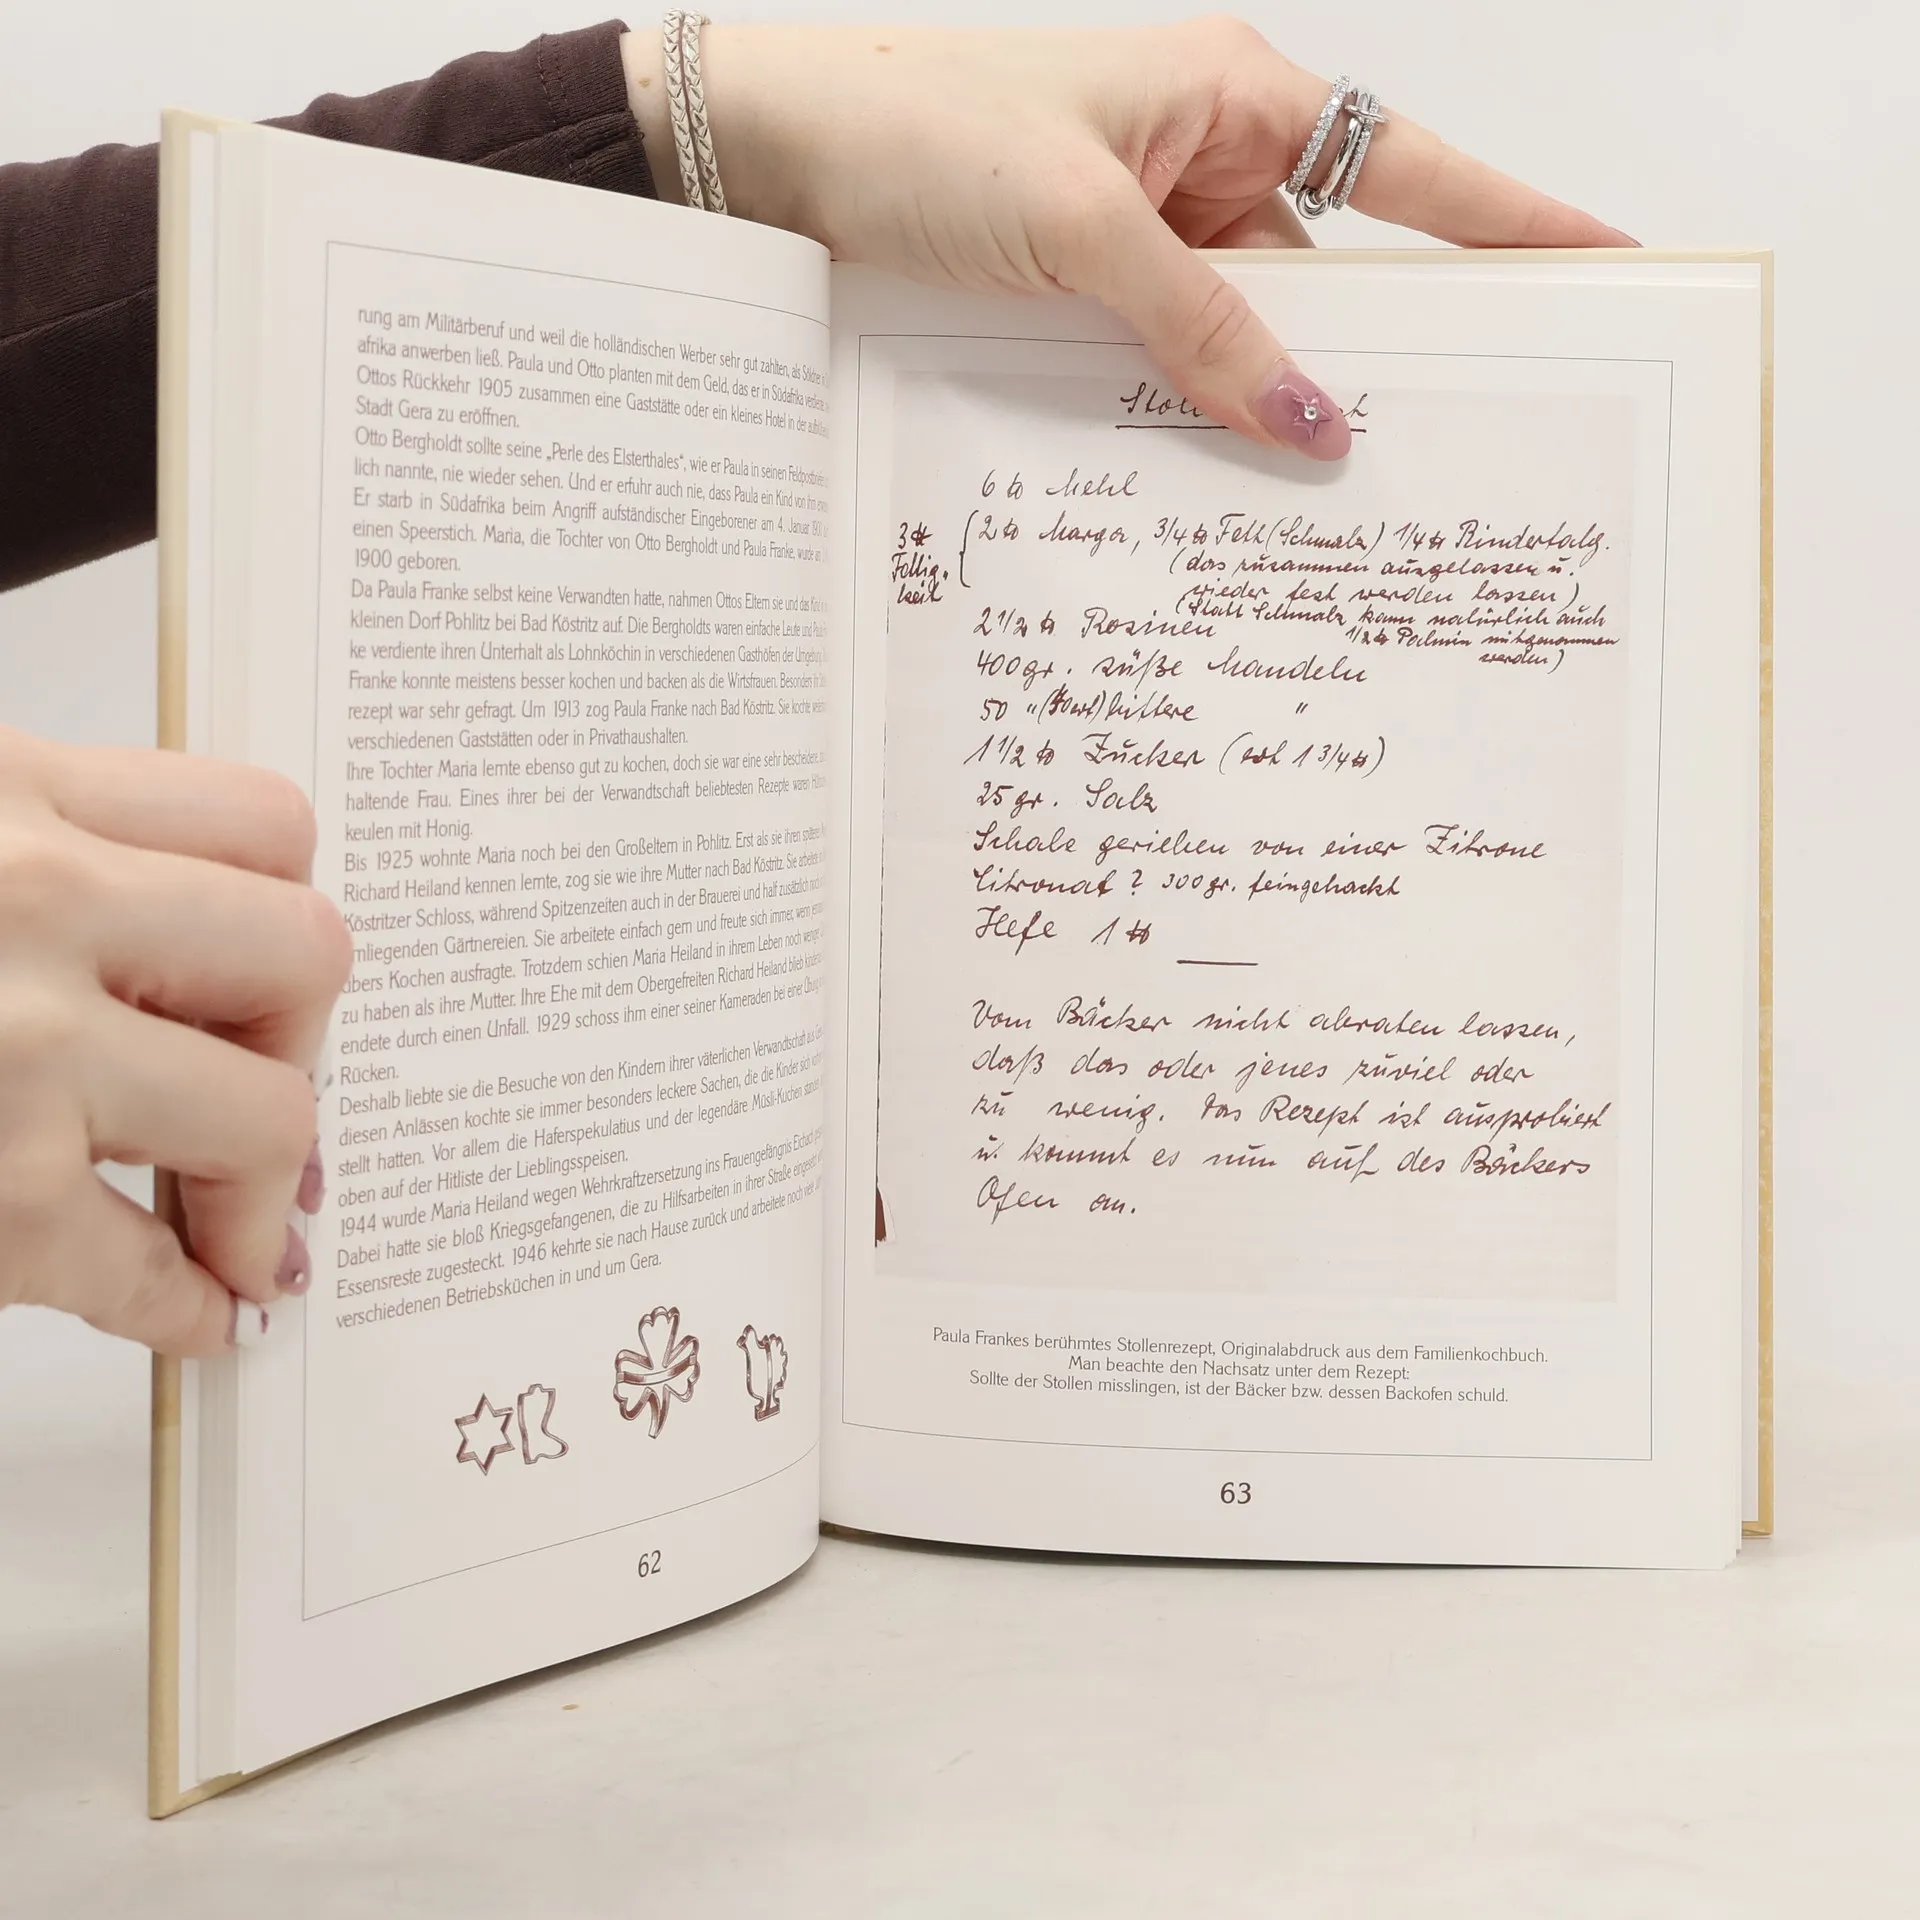 rung am Militärberuf und weil die holländischen Werber sehr gut zahlten, als Söldner
afrika anwerben ließ. Paula und Otto planten mit dem Geld, das er in Südafrika verdiente,
Ottos Rückkehr 1905 zusammen eine Gaststätte oder ein kleines Hotel in der
Stadt Gera zu eröffnen.
Otto Bergholdt sollte seine „Perle des Elsterthales“, wie er Paula in seinen Feldpostbriefen
lich nannte, nie wieder sehen. Und er erfuhr auch nie, dass Paula ein Kind von ihm
Er starb in Südafrika beim Angriff aufständischer Eingeborener am 4. Januar 1900
einen Speerstich. Maria, die Tochter von Otto Bergholdt und Paula Franke, wurde am
1900 geboren.
Da Paula Franke selbst keine Verwandten hatte, nahmen Ottos Eltern sie und das Kind
kleinen Dorf Pohlitz bei Bad Köstritz auf. Die Bergholdts waren einfache Leute und
ke verdiente ihren Unterhalt als Lohnköchin in verschiedenen Gasthöfen der Umgebung.
Franke konnte meistens besser kochen und backen als die Wirtsfrauen. Besonders ihr
rezept war sehr gefragt. Um 1913 zog Paula Franke nach Bad Köstritz. Sie kochte
verschiedenen Gaststätten oder in Privathaushalten.
Ihre Tochter Maria lernte ebenso gut zu kochen, doch sie war eine sehr bescheidene,
haltende Frau. Eines ihrer bei der Verwandtschaft beliebtesten Rezepte waren
keulen mit Honig.
Bis 1925 wohnte Maria noch bei den Großeltern in Pohlitz. Erst als sie ihren späteren
Richard Heiland kennen lernte, zog sie wie ihre Mutter nach Bad Köstritz. Sie arbeitete
Köstritzer Schloss, während Spitzenzeiten auch in der Brauerei und half zusätzlich noch
mliegenden Gärtnereien. Sie arbeitete einfach gern und freute sich immer, wenn
übers Kochen ausfragte. Trotzdem schien Maria Heiland in ihrem Leben noch weniger
zu haben als ihre Mutter. Ihre Ehe mit dem Obergefreiten Richard Heiland blieb
endete durch einen Unfall. 1929 schoss ihm einer seiner Kameraden bei einer Übung
Rücken.
Deshalb liebte sie die Besuche von den Kindern ihrer väterlichen Verwandtschaft aus
diesen Anlässen kochte sie immer besonders leckere Sachen, die die Kinder sich
stellt hatten. Vor allem die Haferspekulatius und der legendäre Müsli-Kuchen standen
oben auf der Hitliste der Lieblingsspeisen.
1944 wurde Maria Heiland wegen Wehrkraftzersetzung ins Frauengefängnis Eichach
Dabei hatte sie bloß Kriegsgefangenen, die zu Hilfsarbeiten in ihrer Straße eingesetzt
Essensreste zugesteckt. 1946 kehrte sie nach Hause zurück und arbeitete noch viele
verschiedenen Betriebsküchen in und um Gera.
62
6 ℔ Mehl
3 ℔ Fettig-keit
2 ℔ Marga, 3/4 ℔ Fett (Schmalz) 1/4 ℔ Rindertalg.
(das zusammen ausgelassen u.
wieder fest werden lassen)
(Statt Schmalz kann natürlich auch
1/2 ℔ Palmin mitgenommen
werden)
2 1/2 ℔ Rosinen
400 gr. süße Mandeln
50 " bittere "
1 1/2 ℔ Zucker (1 3/4 ℔)
25 gr. Salz
Schale gerieben von einer Zitrone
Citronat ? 300 gr. feingehackt
Hefe 1 ℔
Vom Bäcker nicht abraten lassen,
daß das oder jenes zuviel oder
zu wenig. Das Rezept ist ausprobiert
u. kommt es nun auf des Bäckers
Ofen an.
Paula Frankes berühmtes Stollenrezept, Originalabdruck aus dem Familienkochbuch.
Man beachte den Nachsatz unter dem Rezept:
Sollte der Stollen misslingen, ist der Bäcker bzw. dessen Backofen schuld.
63